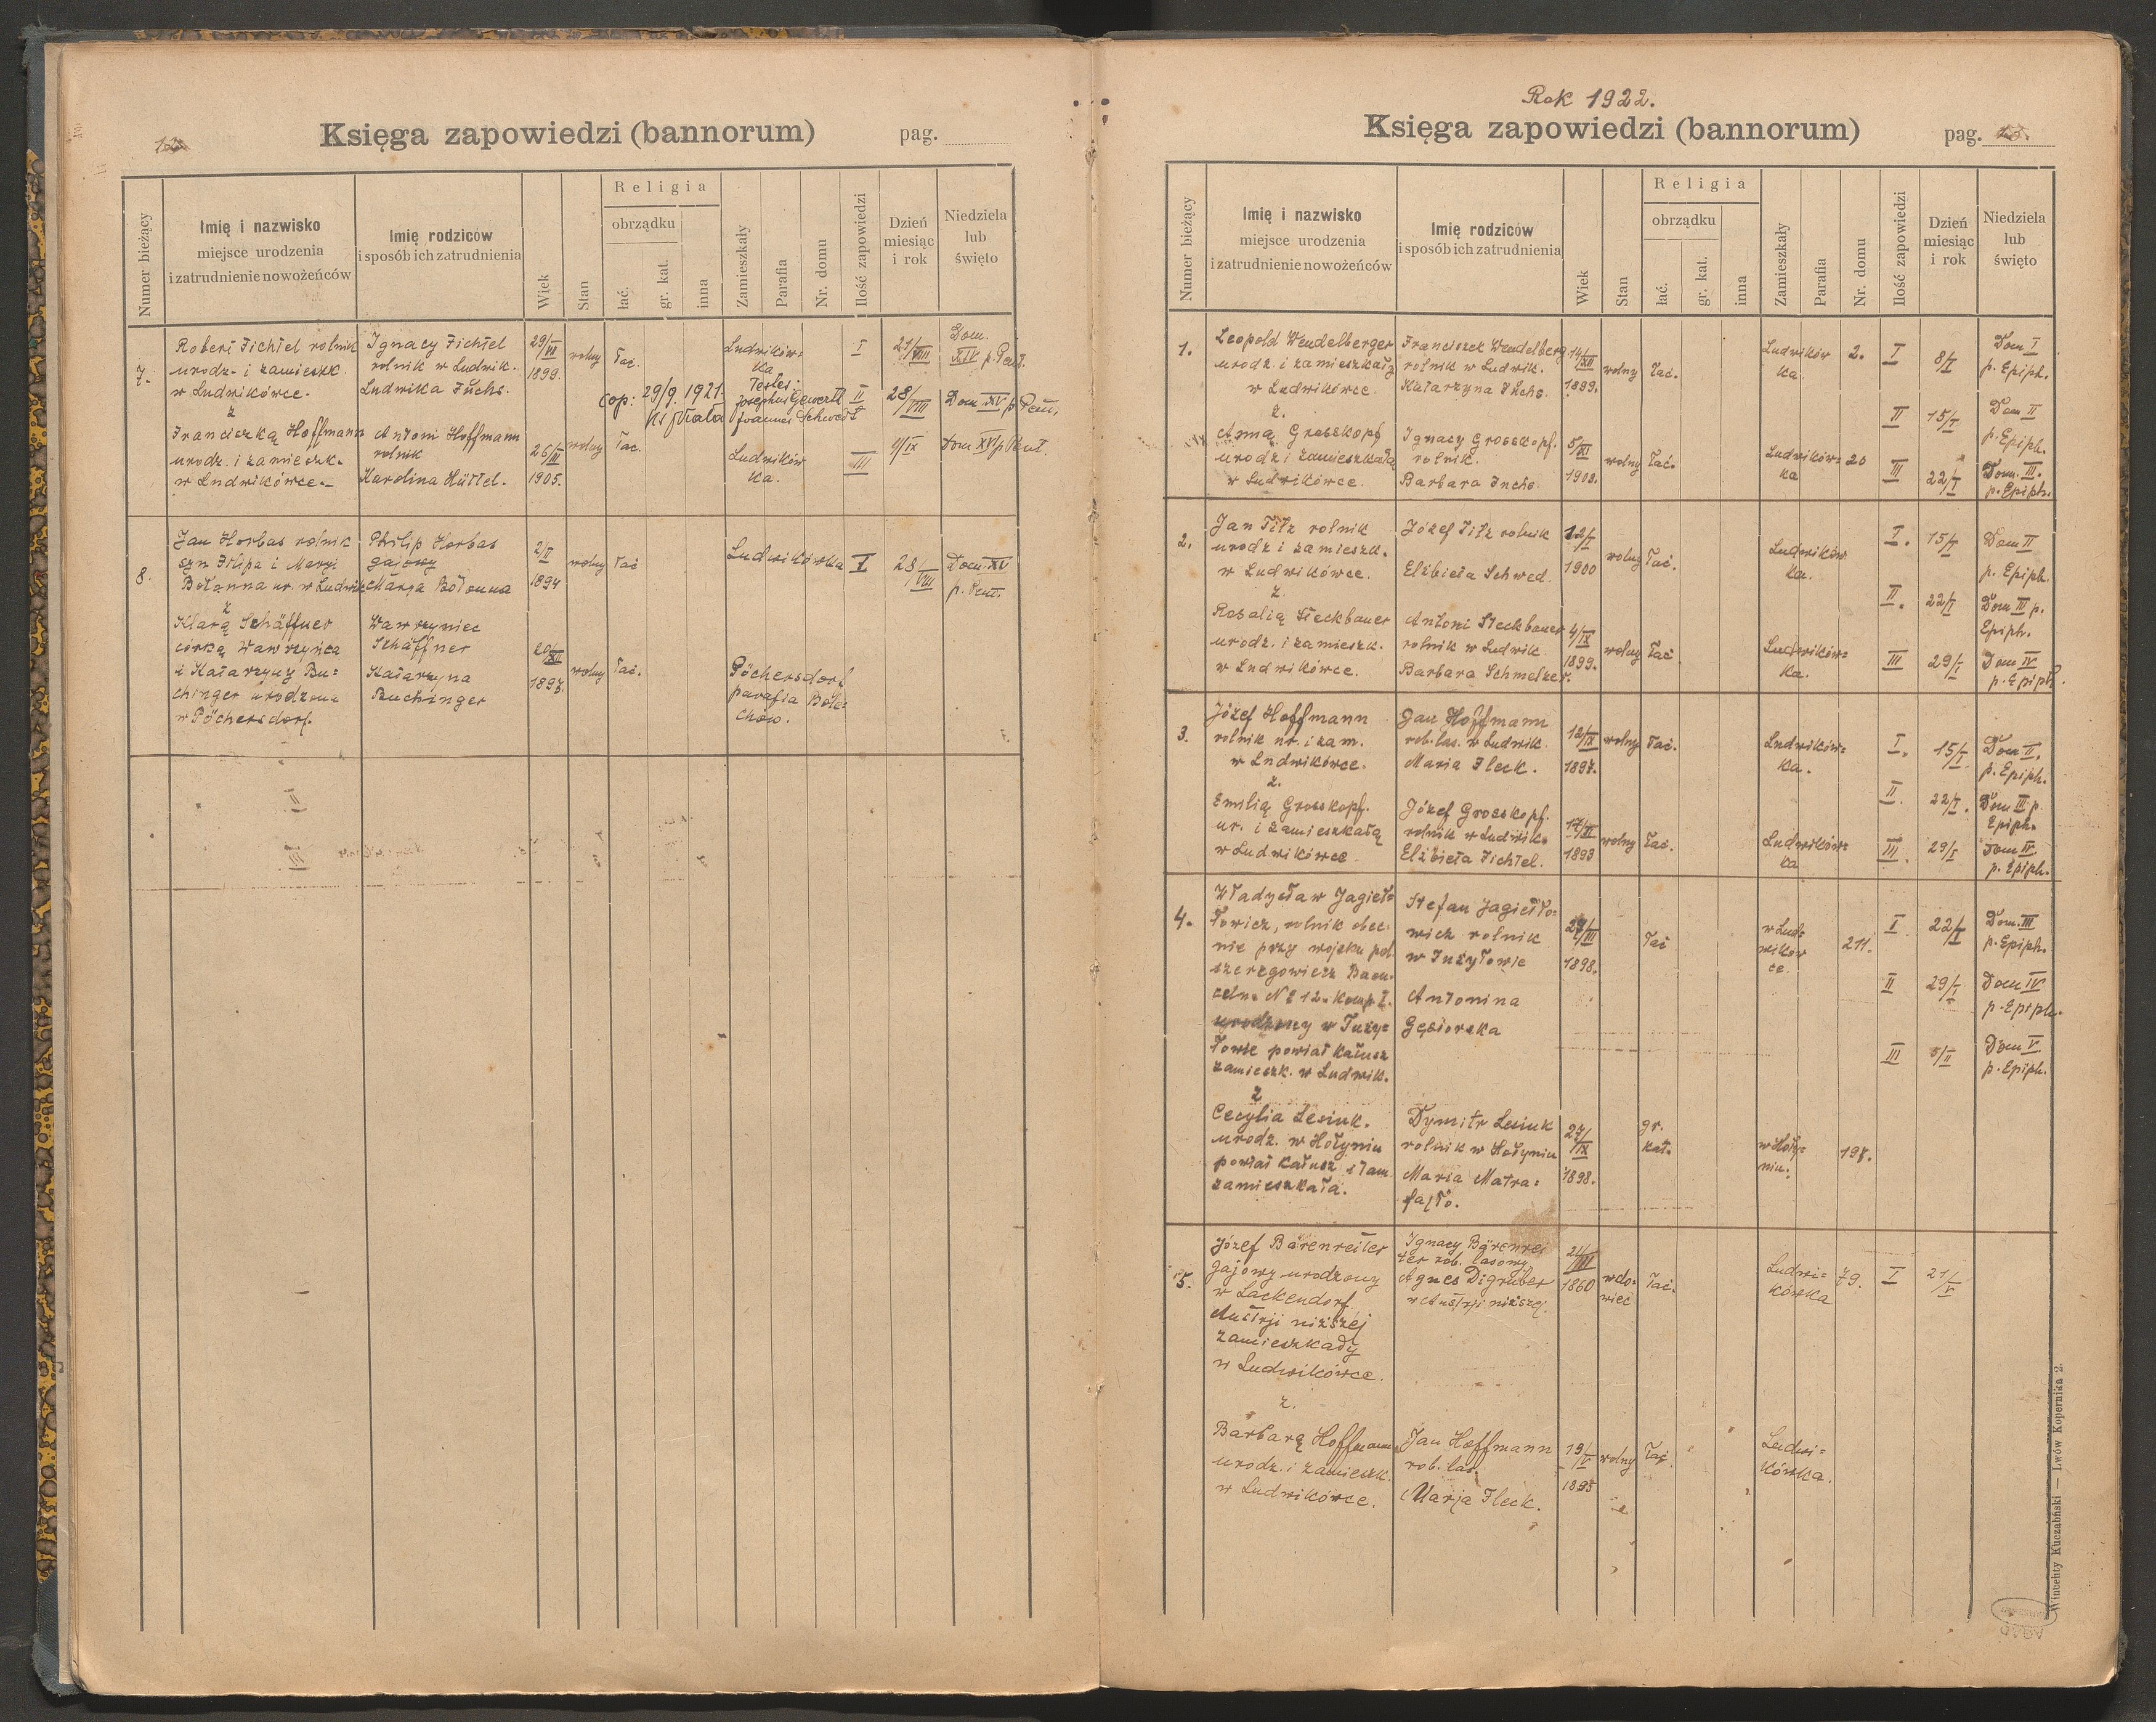 12
Księga zapowiedzi (bannorum)
pag.
Numer bieżący
Imię i nazwisko
miejsce urodzenia
i zatrudnienie nowożeńców
Imię rodziców
i sposób ich zatrudnienia
Wiek
Stan
Religia
obrządku
łać.
gr. kat.
inna
Zamieszkały
Parafia
Nr. domu
Ilość zapowiedzi
Dzień
miesiąc
i rok
Niedziela
lub
święto
7.
Robert Fichtel rolnik
urodz. i zamieszk.
w Ludwikówce.
z
Franciszką Hoffmann
urodz. i zamieszk.
w Ludwikówce.-
Ignacy Fichtel
rolnik w Ludwik.
Ludwika Fuchs.
Antoni Hoffmann
rolnik
Karolina Hüttel.
29/VI
1899.
26/III
1905.
wolny
łać.
wolny
łać.
Cop: 29/9. 1921.
Ludwików=
ka
Testes:
Josephus Gewertl
Joannes Schwedt
Ludwików
ka.
I
21/VIII
Dom.
XIV p. Pent.
II
28/VIII
Dom XV p Pent.
III
4/IX
Dom XVI p Pent.
8.
Jan Horbas rolnik
syn Filipa i Maryi
Bołonna ur. w Ludwik
z
Klarą Schäffner
córką Wawrzyńca
i Katarzyny Bu=
chinger urodzona
w Pöchersdorf.
Philip Horbas
gajowy
Marja Bołonna
Wawrzyniec
Schäffner
Katarzyna
Buchinger
2/II
1894
20/XII
1897.
wolny
łać
wolny
łać.
Ludwikówka
Pöchersdorf
parafia Bole=
chów.
I
28/VIII
Dom. XV
p. Pent.
Rok 1922.
Księga zapowiedzi (bannorum)
pag. 13.
Numer bieżący
Imię i nazwisko
miejsce urodzenia
i zatrudnienie nowożeńców
Imię rodziców
i sposób ich zatrudnienia
Wiek
Stan
Religia
obrządku
łać.
gr. kat.
inna
Zamieszkały
Parafia
Nr. domu
Ilość zapowiedzi
Dzień
miesiąc
i rok
Niedziela
lub
święto
1.
Leopold Wendelberger
urodz. i zamieszkały
w Ludwikówce
z.
Anną Grosskopf
urodz i zamieszkałą
w Ludwikówce
Franciszek Wendelberg
rolnik w Ludwik.
Katarzyna Fuchs.
Ignacy Grosskopf.
rolnik.
Barbara Fuchs
14/XII
1899.
5/XI
1902.
wolny
łać.
wolny
łać.
Ludwików
ka.
2.
Ludwików=
ka
20
I
8/I
Dom I
p. Epiph.
II
15/I
Dom II
p. Epiph.
III
22/I
Dom. III.
p. Epiph.
2.
Jan Titz rolnik
urodz i zamieszk.
w Ludwikówce.
z.
Rosalią Steckbauer
urodz. i zamieszk.
w Ludwikówce.
Józef Titz rolnik
Elżbieta Schwed.
Antoni Steckbauer
rolnik w Ludwik
Barbara Schmelzer.
12/I
1900
4/IX
1899.
wolny
łać.
wolny
łać.
Ludwików
ka.
Ludwików=
ka.
I.
15/I
Dom II
p. Epiph.
II.
22/I
Dom III p.
Epiph.
III
29/I
Dom IV
p. Epiph.
3.
Józef Hoffmann
rolnik ur. i zam.
w Ludwikówce.
z.
Emilią Grosskopf.
ur. i zamieszkałą
w Ludwikówce
Jan Hoffmann
rob. las. w Ludwik.
Maria Fleck.
Józef Grosskopf.
rolnik w Ludwik.
Elżbieta Fichtel.
12/IX
1897.
17/XI
1898
wolny
łać.
wolny
łać.
Ludwików=
ka.
Ludwików=
ka
I.
15/I
Dom II.
p. Epiph.
II.
22/I.
Dom III p.
Epiph.
III.
29/I
Dom IV.
p. Epiph.
4.
Władysław Jagieł=
łowicz, rolnik obec=
nie przy wojsku pol
szerzgowiecz Baon.
celn. N° 12. komp I.
urodzony w Tuży=
łowie powiat Kałusz
zamieszk. w Ludwik.
z
Cecylia Lesiuk.
urodz. w Hołyniu
powiat Kałusz i tam
zamieszkała.
Stefan Jagiełło=
wicz rolnik
w Tużyłowie
Antonina
Gąsiorska
Dymitr Lesiuk
rolnik w Hołyniu
Maria Matra=
fajło.
1898.
27/IX
1898.
łać
gr.
kat.
w Lud=
wików
ce.
211.
w Hoły=
niu.
197.
I
22/I
Dom. III
p. Epiph.
II
29/I
Dom IV
p. Epiph.
III
5/II
Dom V.
p. Epiph.
5.
Józef Bärenreiter
gajowy urodzony
w Lackendorf
Austrji niższej
zamieszkały
w Ludwikówce.
z.
Barbarą Hoffmann
urodz. i zamieszk.
w Ludwikówce.
Ignacy Bärenrei
ter rob. lasowy
Agnes Digruber
w Austrji niższej.
Jan Hoffmann
rob. las.
Marja Fleck.
21/III
1860
19/V
1895
wdo=
wiec
łać.
wolny
łać.
Ludwi=
kówka
79.
Ludwi=
kówka.
I
21/V
Wincenty Kuczabiński — Lwów Kopernika 2.